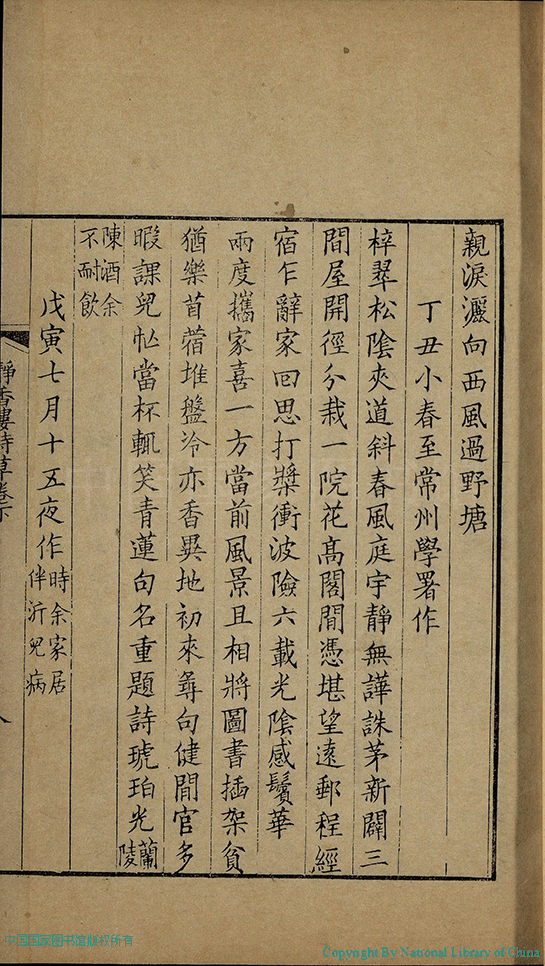 親淚灑向西風過野塘
丁丑小春至常州學署作
梓翠松陰夾道斜春風庭宇靜無譁誅茅新闢三
間屋開徑分栽一院花高閣閒憑堪望遠郵程經
宿乍辭家回思打槳衝波險六載光陰感鬢華
兩度攜家喜一方當前風景且相將圖書插架貧
猶樂苜蓿堆盤冷亦香異地初來尋句健閒官多
暇課兒忙當杯輒笑青蓮句名重題詩琥珀光蘭陵
陳酒余
不耐飲
戊寅七月十五夜作時余家居
伴沂兒病
靜香樓詩草卷下
八
中国国家图书馆版权所有
Copyright By National Library of China